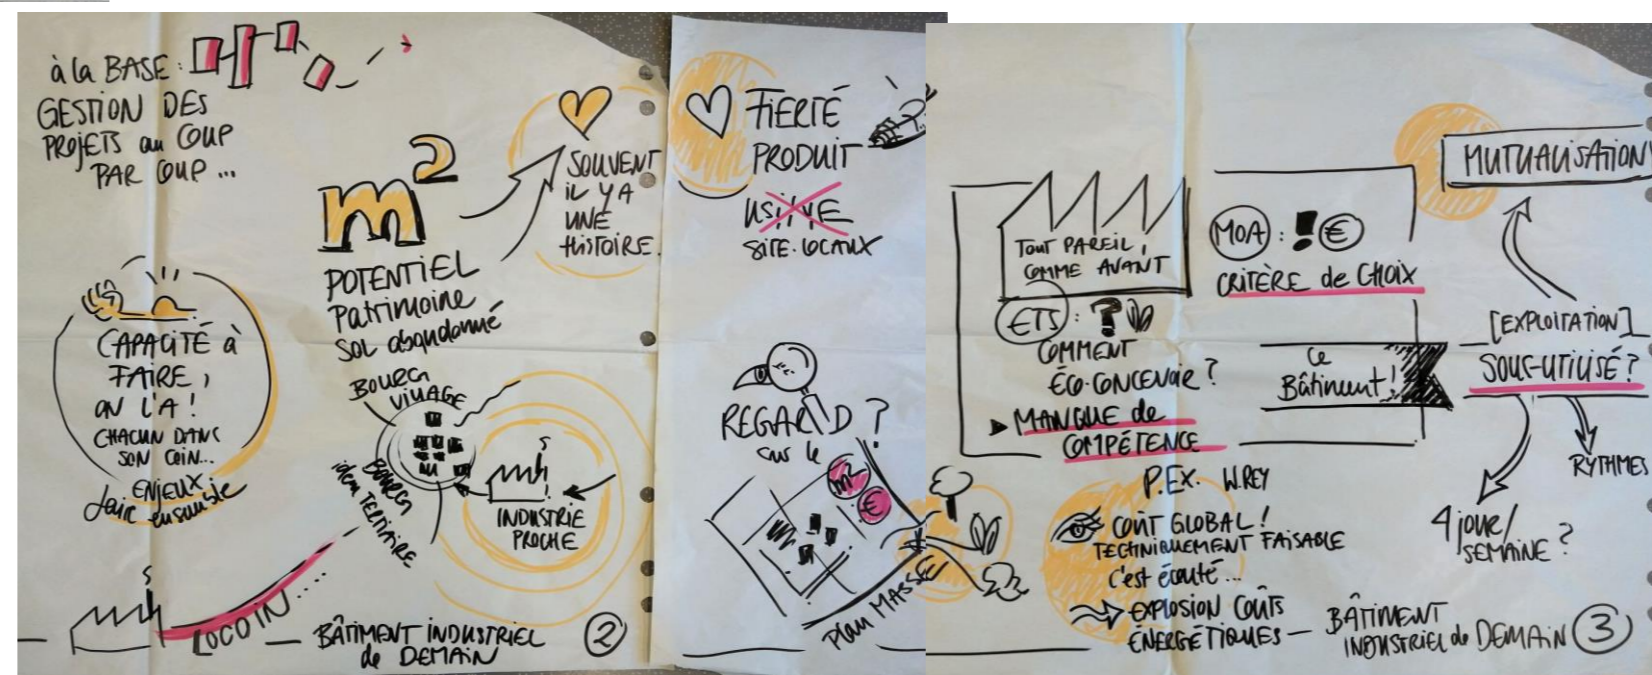 à la BASE :
GESTION DES
PROJETS au COUP
PAR COUP ...
m²
POTENTIEL
Patrimoine
SOL abandonné
SOUVENT
IL Y A
UNE
HISTOIRE.
CAPACITÉ à
FAIRE,
ON L'A !
CHACUN DANS
SON COIN...
ENJEUX
faire ensemble
BOURG
VILLAGE
BOURG
idem TERTIAIRE
INDUSTRIE
PROCHE
LOCO IN...
BÂTIMENT INDUSTRIEL
de DEMAIN
2
FIERTÉ
PRODUIT
USINE
SITE. LOCAUX
REGARD ?
sur le
m²
€
Plan MASSE
TOUT PAREIL,
COMME AVANT
ETS : ?
COMMENT
ÉCO-CONCEVOIR ?
MANQUE de
COMPÉTENCE
P.EX. W.REY
COÛT GLOBAL !
TECHNIQUEMENT FAISABLE
c'est écouté...
EXPLOSION COÛTS
ÉNERGÉTIQUES
MOA : ! €
CRITÈRE de CHOIX
Ce
Bâtiment !
MUTUALISATION
[EXPLOITATION]
SOUS-UTILISÉ ?
RYTHMES
4 jour/
SEMAINE ?
BÂTIMENT
INDUSTRIEL de DEMAIN
3